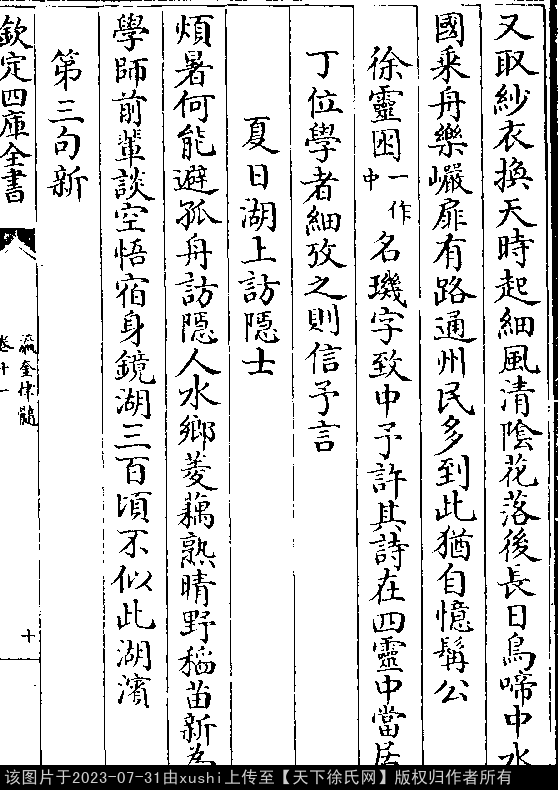 又取紗衣換天時起細風清陰花落後長日鳥啼中水
國乘舟樂巖扉有路通州民多到此猶自憶髯公
徐靈困一作中名璣字致中予許其詩在四靈中當居
丁位學者細攷之則信予言
夏日湖上訪隱士
煩暑何能避孤舟訪隱人水鄉菱藕熟晴野稻苗新為
學師前輩談空悟宿身鏡湖三百頃不似此湖濱
第三句新
欽定四庫全書
瀛奎律髓
卷十一
十
该图片于2023-07-31由xushi上传至【天下徐氏网】版权归作者所有